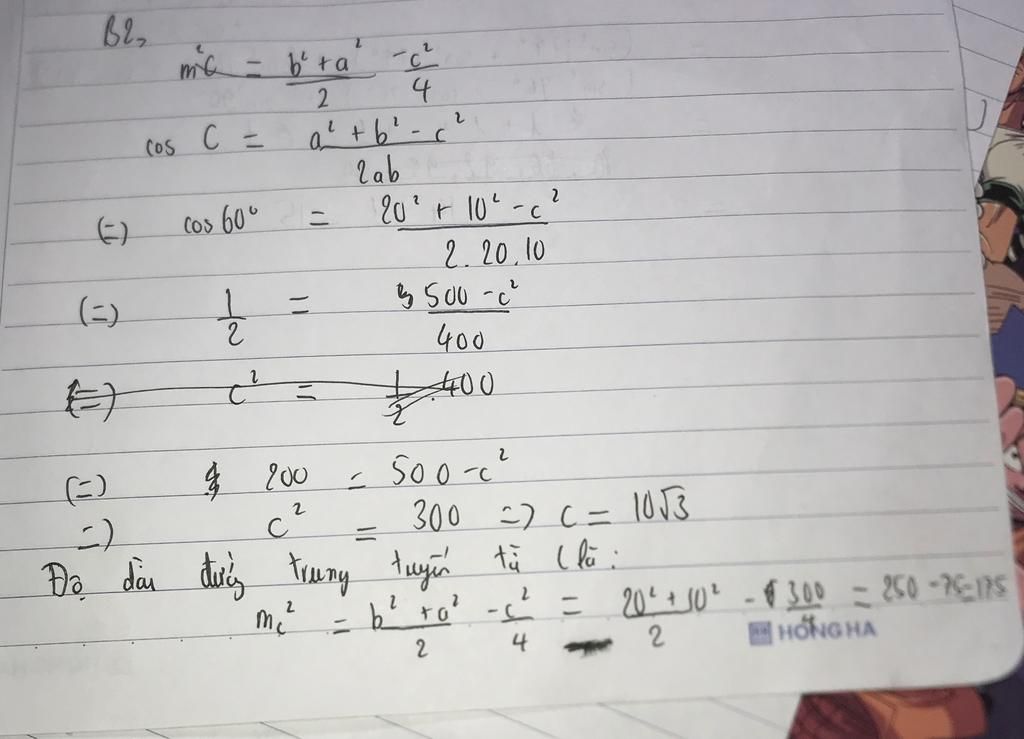 B2,
m²c = (b² + a²)/2 - c²/4
cos C = (a² + b² - c²)/2ab
(=) cos 60° = (20² + 10² - c²)/(2.20.10)
(=) 1/2 = (500 - c²)/400
(=) c² = 1/2 . 400
(=) 200 = 500 - c²
=) c² = 300 => c = 10√3
Độ dài đường trung tuyến từ C là:
mc² = (b² + a²)/2 - c²/4 = (20² + 10²)/2 - 300/4 = 250 - 75 = 175
HONG HA